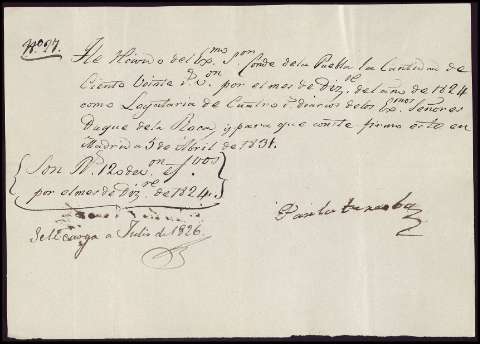 Nº 97.
He Rivido del Exmo Sor Conde de la Puebla la Cantidad de
Ciento Veinte rs. von por el mes de Dizre. del año de 1824
como Legataria de Cuatro rs diarios de los Exmos Señores
Duque de la Roca, y para que conste firmo esta en
Madrid a 5 de Abril de 1831.
Son Rs. 120 de von efvos
por el mes de Dizre. de 1824.
Se le carga a Julio de 1826.